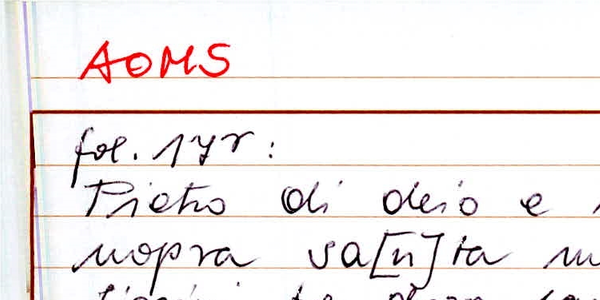 AOMS
fol. 17r:
Pietro di deio e
nopra sa[n]ta